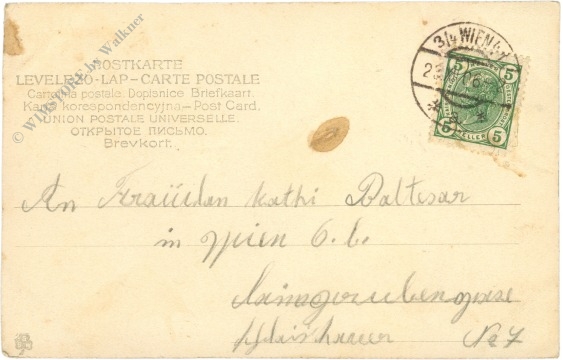 POSTKARTE
LEVELEZŐ-LAP-CARTE POSTALE
Cartolina postale. Dopisnice Briefkaart.
Karta korespondencyjna-Post Card.
UNION POSTALE UNIVERSELLE.
ОТКРЫТОЕ ПИСЬМО.
Brevkort.
© WIKSTORE by Walkner
3/4 WIEN
06
5 5
5 5
An Fraülan Kathi Baltesar
in Wien 6. b.
No 7